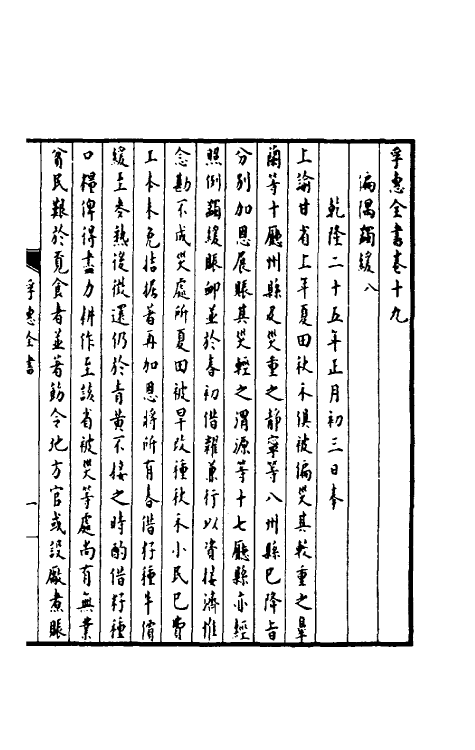 孚惠全書卷十九
偏隅蠲緩八
乾隆二十五年正月初三日奉
上諭甘省上年夏田秋禾俱被偏災其較重之臯
蘭等十廳州縣及災重之靜寧等八州縣已降旨
分别加恩展賑其災輕之渭源等十七廳縣亦經
照例蠲緩賑卹並於春初借糶兼行以資接濟惟
念勘不成災處所夏田被旱改種秋禾小民已費
工本未免拮据著再加恩將所有春借籽種牛價
緩至麥熟後徵還仍於青黄不接之時酌借籽種
口糧俾得盡力耕作至該省被災等處尚有無業
窮民艱於覓食者並著飭令地方官或設廠煮賑
孚惠全書
一